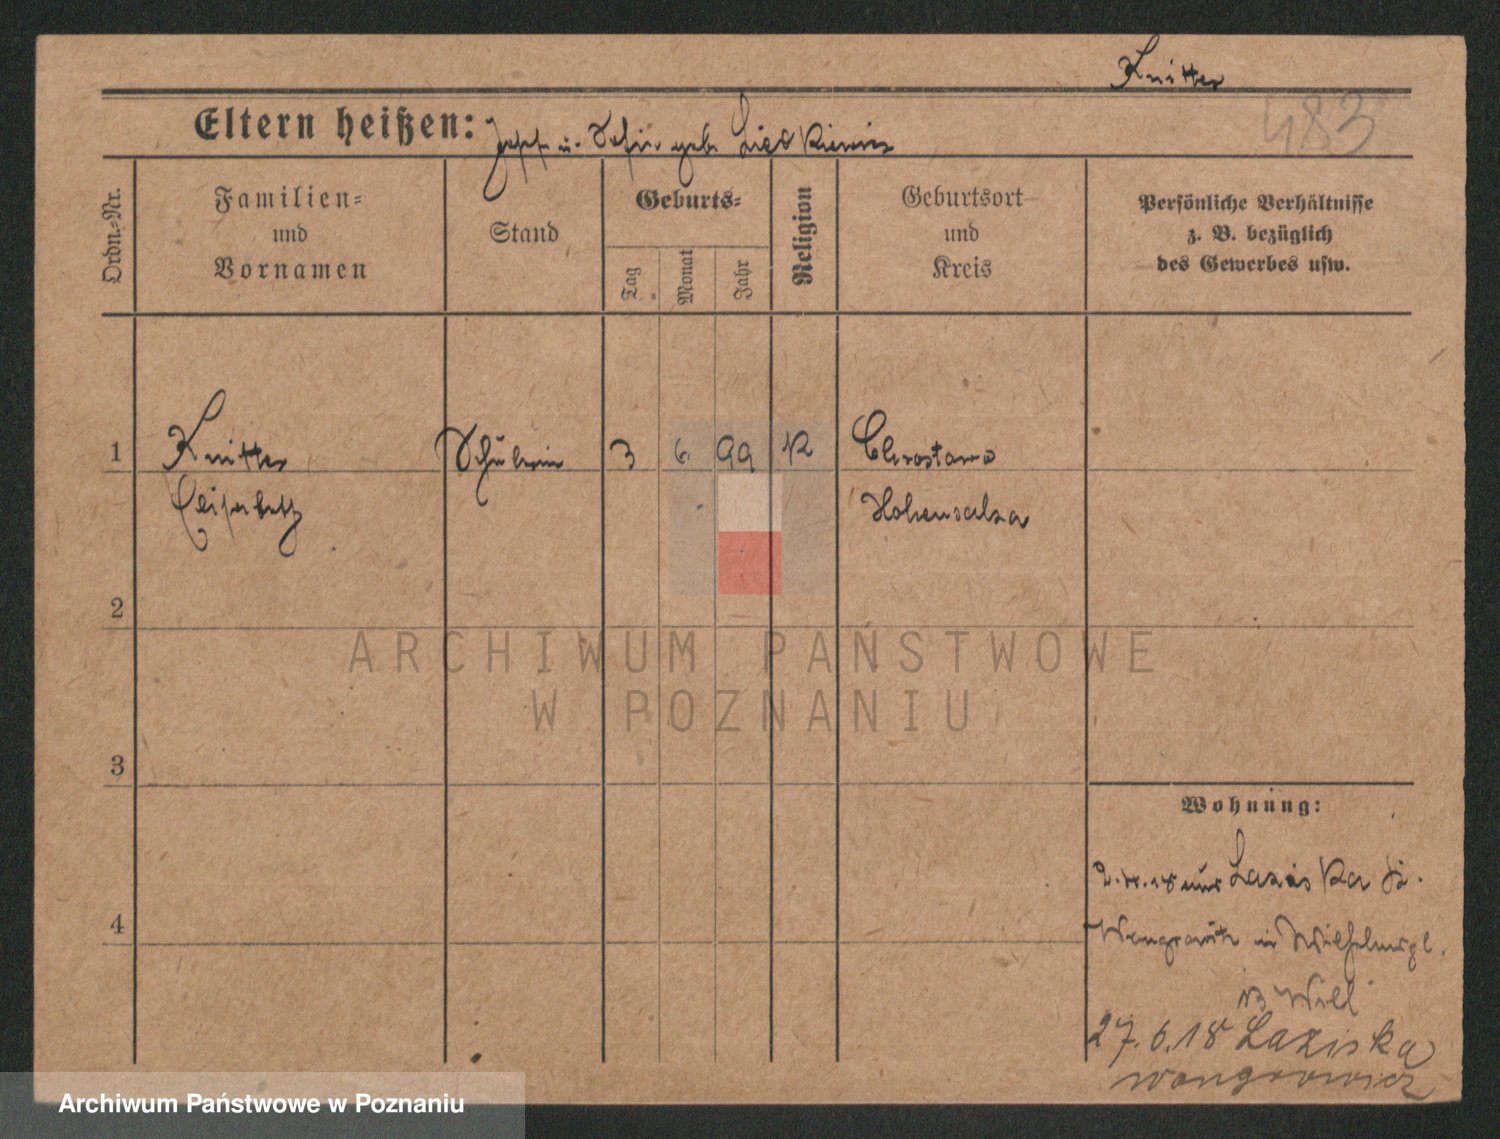 Knitter
483
Eltern heißen: Josef u. Sofie geb. Lieskiewicz
Ordn.-Nr.
Familien-
und
Vornamen
Stand
Geburts-
Tag
Monat
Jahr
Religion
Geburtsort
und
Kreis
Persönliche Verhältnisse
z. B. bezüglich
des Gewerbes usw.
1 Knitter Schülerin 3 6. 99 K Chrostowo
Elisabeth Hohensalza
2
3
4
Wohnung:
2.4.18 aus Laziska Kr.
Wongrowitz in Wilhelmspl.
27.6.18 Laziska
Wongrowitz
ARCHIWUM PAŃSTWOWE
W POZNANIU
Archiwum Państwowe w Poznaniu